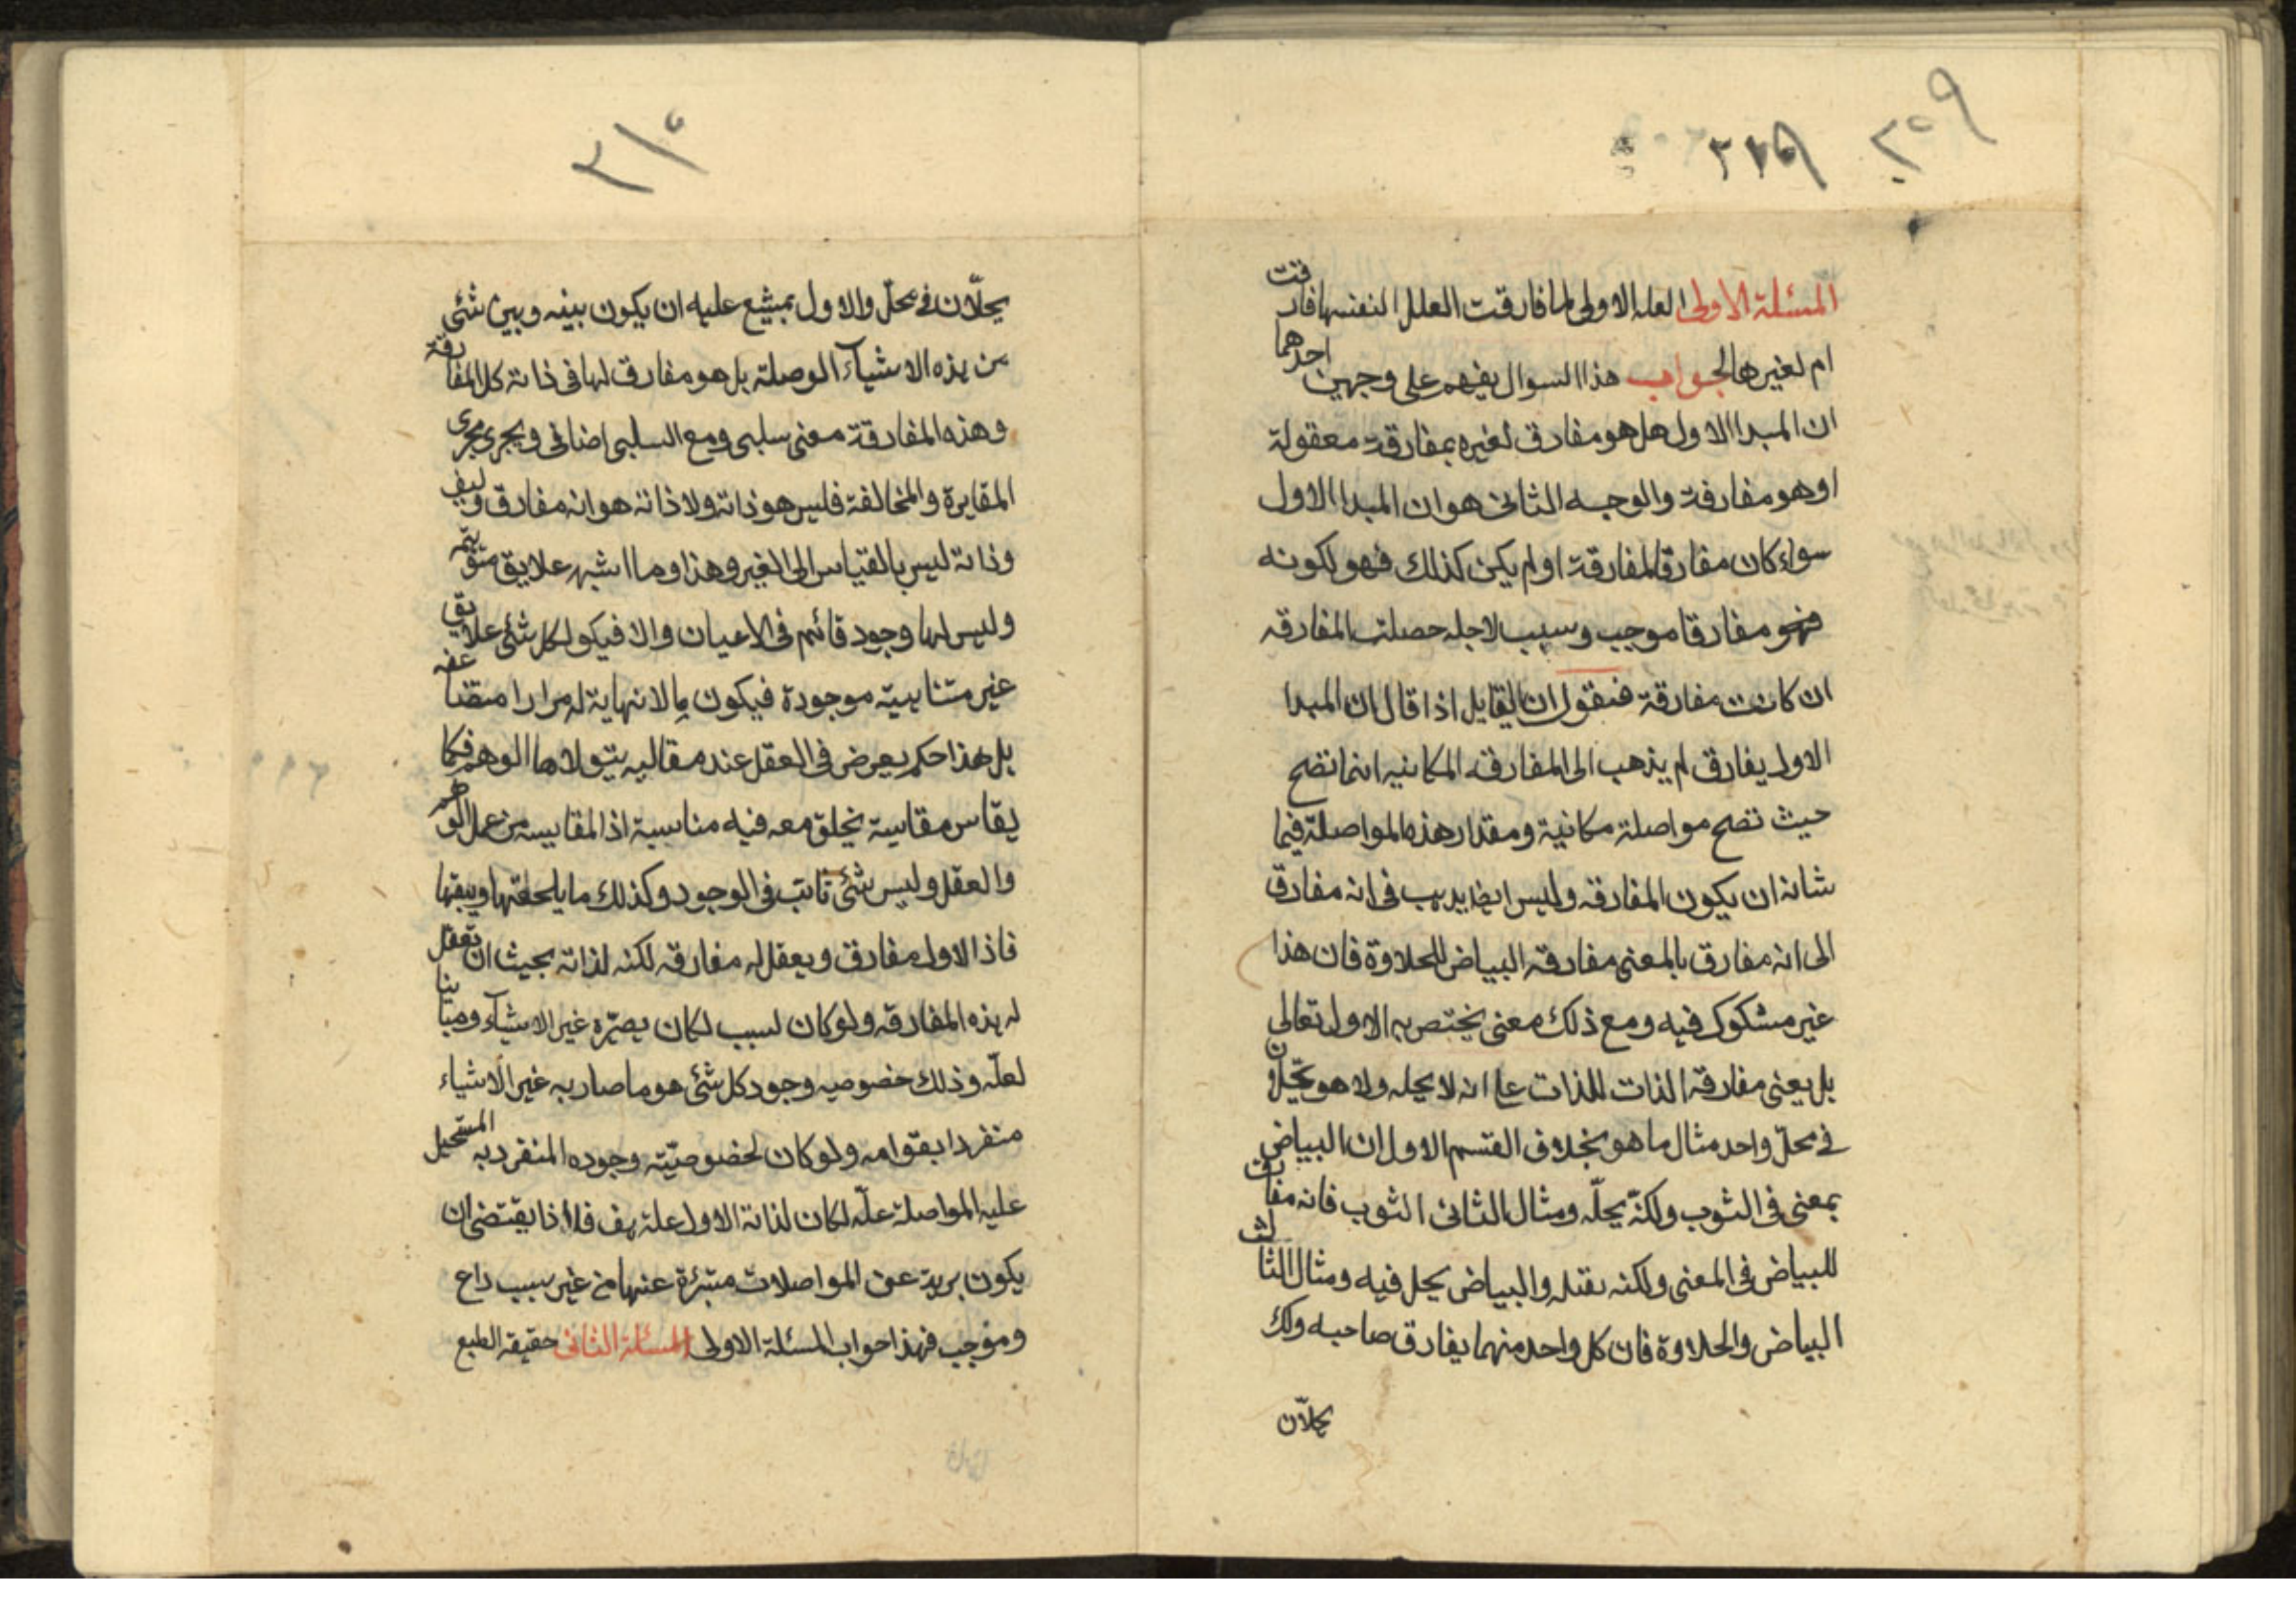 ٣٠٩
٣١٩
المسئلة الاولى العله الاولى لما فارقت العلل النفسها فارقت
ام لغيرها الجواب هذا السوال يفهم على وجهين احدهما
ان المبدا الاول هل هو مفارق لغيره بمفارقة معقولة
او هو مفارقة والوجه الثانى هو ان المبدا الاول
سواء كان مفارقا لمفارقة او لم يكن كذلك فهو لكونه
فهو مفارقا موجب وسبب لاجله حصلت المفارقه
ان كانت مفارقة فنقول ان القايل اذا قال ان المبدا
الاول يفارق لم يذهب الى المفارقه المكانيه انما تصح
حيث تصح مواصلة مكانية ومقدار هذه المواصلة فيما
شانه ان يكون المفارقه وليس ايضا يذهب فى انه مفارق
الى انه مفارق بالمعنى مفارقه البياض للحلاوة فان هذا
غير مشكوك فيه ومع ذلك معنى يختص به الاول تعالى
بل يعنى مفارقه الذات للذات على انه لا يحله ولا هو يحلان
فى محل واحد مثال ما هو بخلاف القسم الاول ان البياض
بمعنى فى الثوب ولكنه يحله ومثال الثانى الثوب فانه مفارق
للبياض فى المعنى ولكنه يقتله والبياض يحل فيه ومثال الثالث
البياض والحلاوة فان كل واحد منهما يفارق صاحبه ولك
يحلان
٣١٠
يحلّان فى محلّ والاول بمتنع عليه ان يكون بينه وبين شئى
من هذه الاشيآء الوصلة بل هو مفارق لها فى ذاته كل المفارقة
وهذه المفارقة معنى سلبى ومع السلبى اضافى ويجرى مجرى
المقايرة والمخالفة فليس هو ذاته ولا ذاته هو انه مفارق وليف
وذاته ليس بالقياس الى الغير وهذا وما اشبهه علايق متوهمه
وليس لها وجود قائم فى الاعيان والا فيكو لكل شئى علايق
غير متناهيه موجودة فيكون ما لانهاية له مرارا متضاعفه
بل هذا حكم يعرض فى العقل عند مقاليه يتولاها الوهم فكما
يقاس مقايسة يخلق معه فيه مناسبة اذ المقايسه من عمل الوهم
والعقل وليس شئى ثابت فى الوجود وكذلك ما يلحقها ويتبعها
فاذ الاول مفارق ويعقل له مفارقه لكنه لذاته بحيث ان تعقل
له هذه المفارقه ولو كان لسبب لكان يصيّره غير الاشيآء ومباينا
لعلّه وذلك خصوصيه وجود كل شئى هو ما صار به غير الاشياء
منفردا بقوامه ولو كان لخصوصيّته وجوده المنفرد به المستحيل
عليه المواصلة علّه لكان لذاته الاول علة هف فلا ذا يقتضى ان
يكون برية عن المواصلات متبرّئة عنها من غير سبب داع
وموجب فهذا جواب المسئلة الاولى المسئلة الثانى حقيقه الطبع